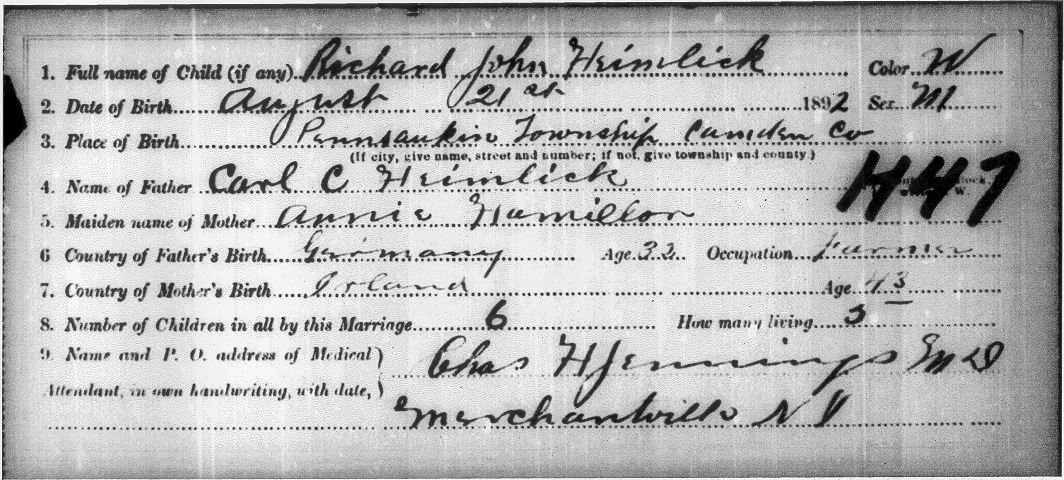 1. Full name of Child (if any) Richard John Heimlick Color W
2. Date of Birth August 21st 1892 Sex M
3. Place of Birth Pennsaukin Township Camden Co
(If city, give name, street and number; if not, give township and county.)
4. Name of Father Carl C Heimlick
H47
5. Maiden name of Mother Annie Hamillon
6 Country of Father's Birth Germany Age 32 Occupation Farmer
7. Country of Mother's Birth Irland Age 43
8. Number of Children in all by this Marriage 6 How many living
9. Name and P. O. address of Medical Chas H Jennings M D
Attendant, in own handwriting, with date,
Merchantville N J